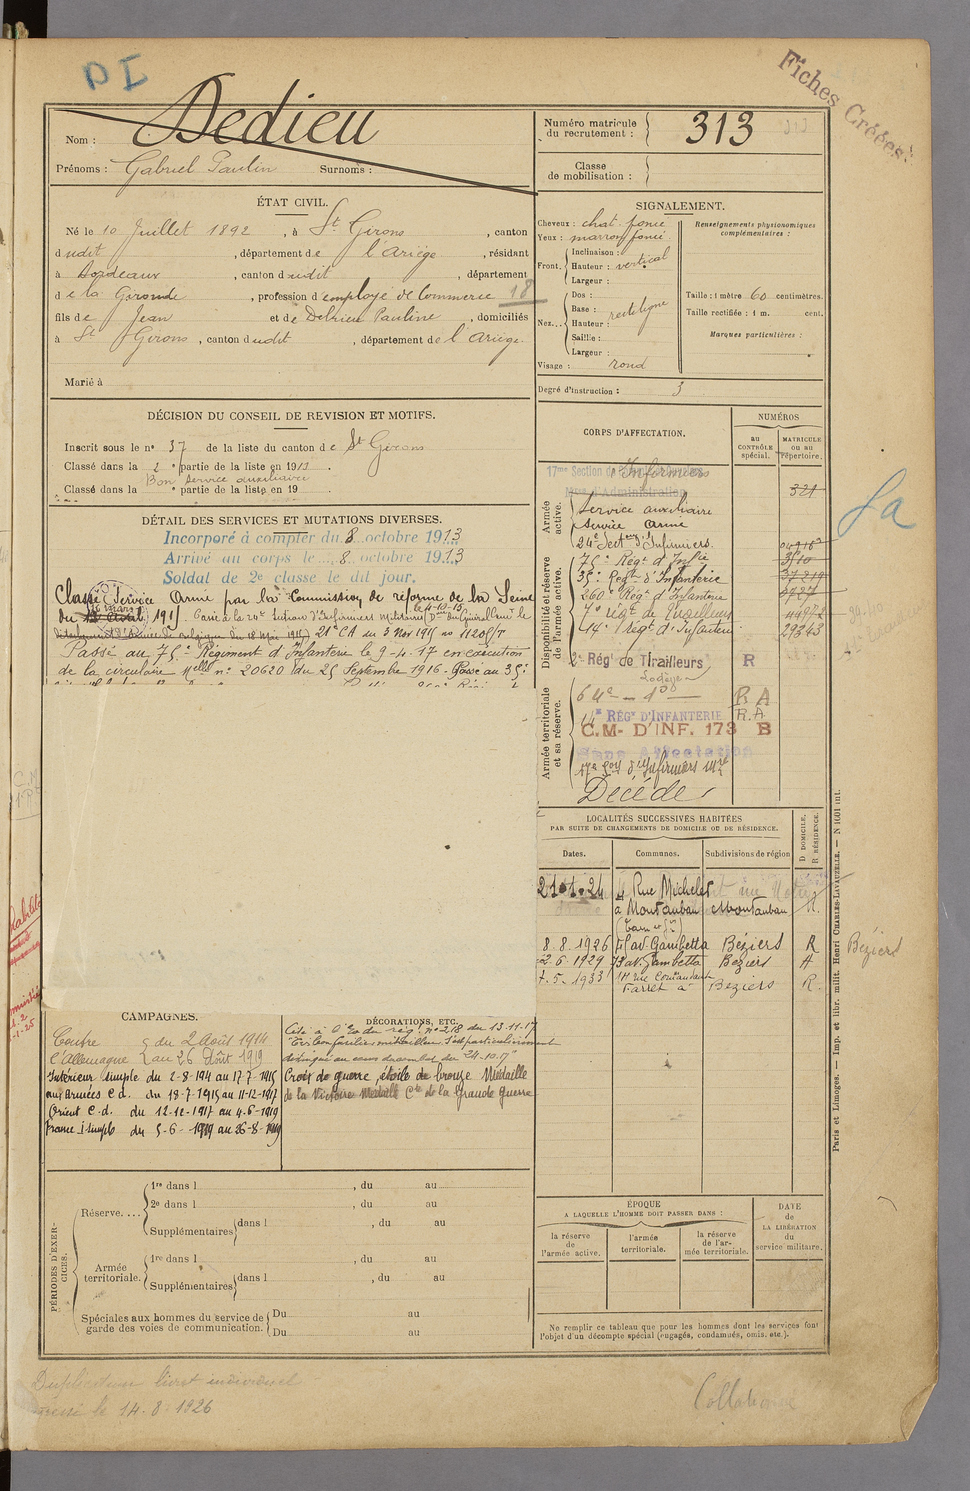 DI
Fiches Créées
Nom : Dedieu
Prénoms : Gabriel Paulin Surnoms :
Numéro matricule du recrutement : 313
Classe de mobilisation :
ÉTAT CIVIL.
Né le 10 Juillet 1892, à St Girons, canton
dudit, département de l'Ariège, résidant
à Bordeaux, canton dudit, département
de la Gironde, profession d'employé de Commerce 18
fils de Jean et de Delrieu Pauline, domiciliés
à St Girons, canton dudit, département de l'Ariège.
Marié à
SIGNALEMENT.
Cheveux : chat. foncé
Yeux : marron foncé
Front. Inclinaison :
Hauteur : vertical
Largeur :
Nez... Dos :
Base : rectiligne
Hauteur :
Saillie :
Largeur :
Visage : rond
Renseignements physionomiques complémentaires :
Taille : 1 mètre 60 centimètres.
Taille rectifiée : 1 m. cent.
Marques particulières :
Degré d'instruction : 3
DÉCISION DU CONSEIL DE REVISION ET MOTIFS.
Inscrit sous le no 37 de la liste du canton de St Girons
Classé dans la 2e partie de la liste en 1913.
Bon service auxiliaire
Classé dans la e partie de la liste en 19
DÉTAIL DES SERVICES ET MUTATIONS DIVERSES.
Incorporé à compter du 8 octobre 1913
Arrivé au corps le 8 octobre 1913
Soldat de 2e classe le dit jour.
Classé Service Armé par la Commission de réforme de la Seine
du 1915
21e CA du 3 Nov 1915 no 11205/T
Passé au 75e Régiment d'Infanterie le 9-4-17 en exécution
de la circulaire Nelle no 20620 du 25 Septembre 1916. Passé au 35e
CORPS D'AFFECTATION.
NUMÉROS
au CONTRÔLE spécial.
MATRICULE ou au répertoire.
Armée active.
17me Section d'Infirmiers
321
Service auxiliaire
Service armé
24e Secton d'Infirmiers
Disponibilité et réserve de l'armée active.
75e Régt d'Infie 3510
35e Regt d'Infanterie 37219
260e Régt d'Infanterie
4e régt de Tirailleurs
14e régt d'Infanterie 27843
2e Régt de Tirailleurs R
Armée territoriale et sa réserve.
R A
14e RÉGt D'INFANTERIE R.A
C.M- D'INF. 173 B
Sans Affectation
17e son d'Infirmiers Mres
Décédé
LOCALITÉS SUCCESSIVES HABITÉES
PAR SUITE DE CHANGEMENTS DE DOMICILE OU DE RÉSIDENCE.
Dates. Communes. Subdivisions de région
D DOMICILE. R RÉSIDENCE.
21-1-24 4 Rue Michelet
à Montauban Montauban
8.8.1926 av. Gambetta Béziers R
2-6-1929 73 av. Gambetta Béziers
7-5-1933 rue Commandant
Farret à Béziers R.
Béziers
CAMPAGNES.
Contre du 2 Août 1914
l'Allemagne au 26 Août 1919
Intérieur simple du 2-8-1914 au 17-7-1915
aux Armées C.d. du 18-7-1915 au 11-12-1917
Orient C.d. du 12-12-1917 au 4-6-1919
France simple du 5-6-1919 au 26-8-1919
DÉCORATIONS, ETC.
Cité à l'ordre du régt no 218 du 13-11-17
"Très bon fusilier mitrailleur. S'est particulièrement
distingué au cours du combat du 24-10-17"
Croix de guerre, étoile de bronze Médaille
de la Victoire Médaille Cve de la Grande guerre
PÉRIODES D'EXERCICES.
Réserve....
1re dans l , du au
2e dans l , du au
Supplémentaires dans l , du au
Armée territoriale.
1re dans l , du au
Supplémentaires dans l , du au
Spéciales aux hommes du service de garde des voies de communication.
Du au
Du au
ÉPOQUE
A LAQUELLE L'HOMME DOIT PASSER DANS :
la réserve de l'armée active.
l'armée territoriale.
la réserve de l'armée territoriale.
DATE de LA LIBÉRATION du service militaire.
Ne remplir ce tableau que pour les hommes dont les services font
l'objet d'un décompte spécial (engagés, condamnés, omis, etc.).
Paris et Limoges. — Imp. et libr. milit. Henri CHARLES-LAVAUZELLE. — N 1601 int.
Duplication livret individuel
le 14.8.1926
Collationné